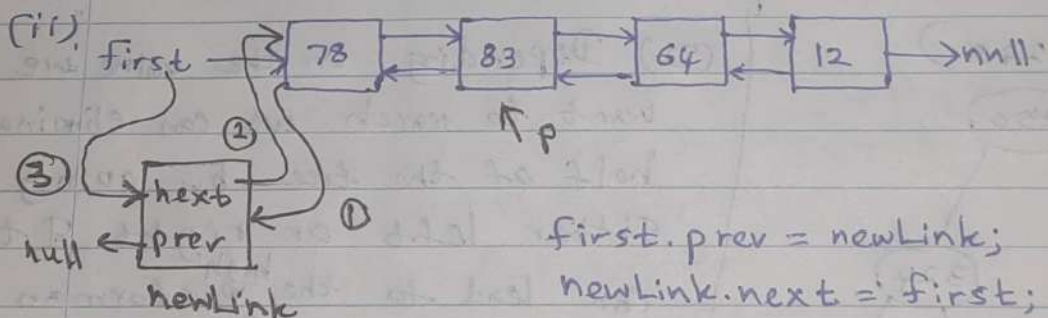 (ii)
first 78 83 64 12 null
p
②
③ next ①
null prev
newLink
first.prev = newLink;
newLink.next = first;